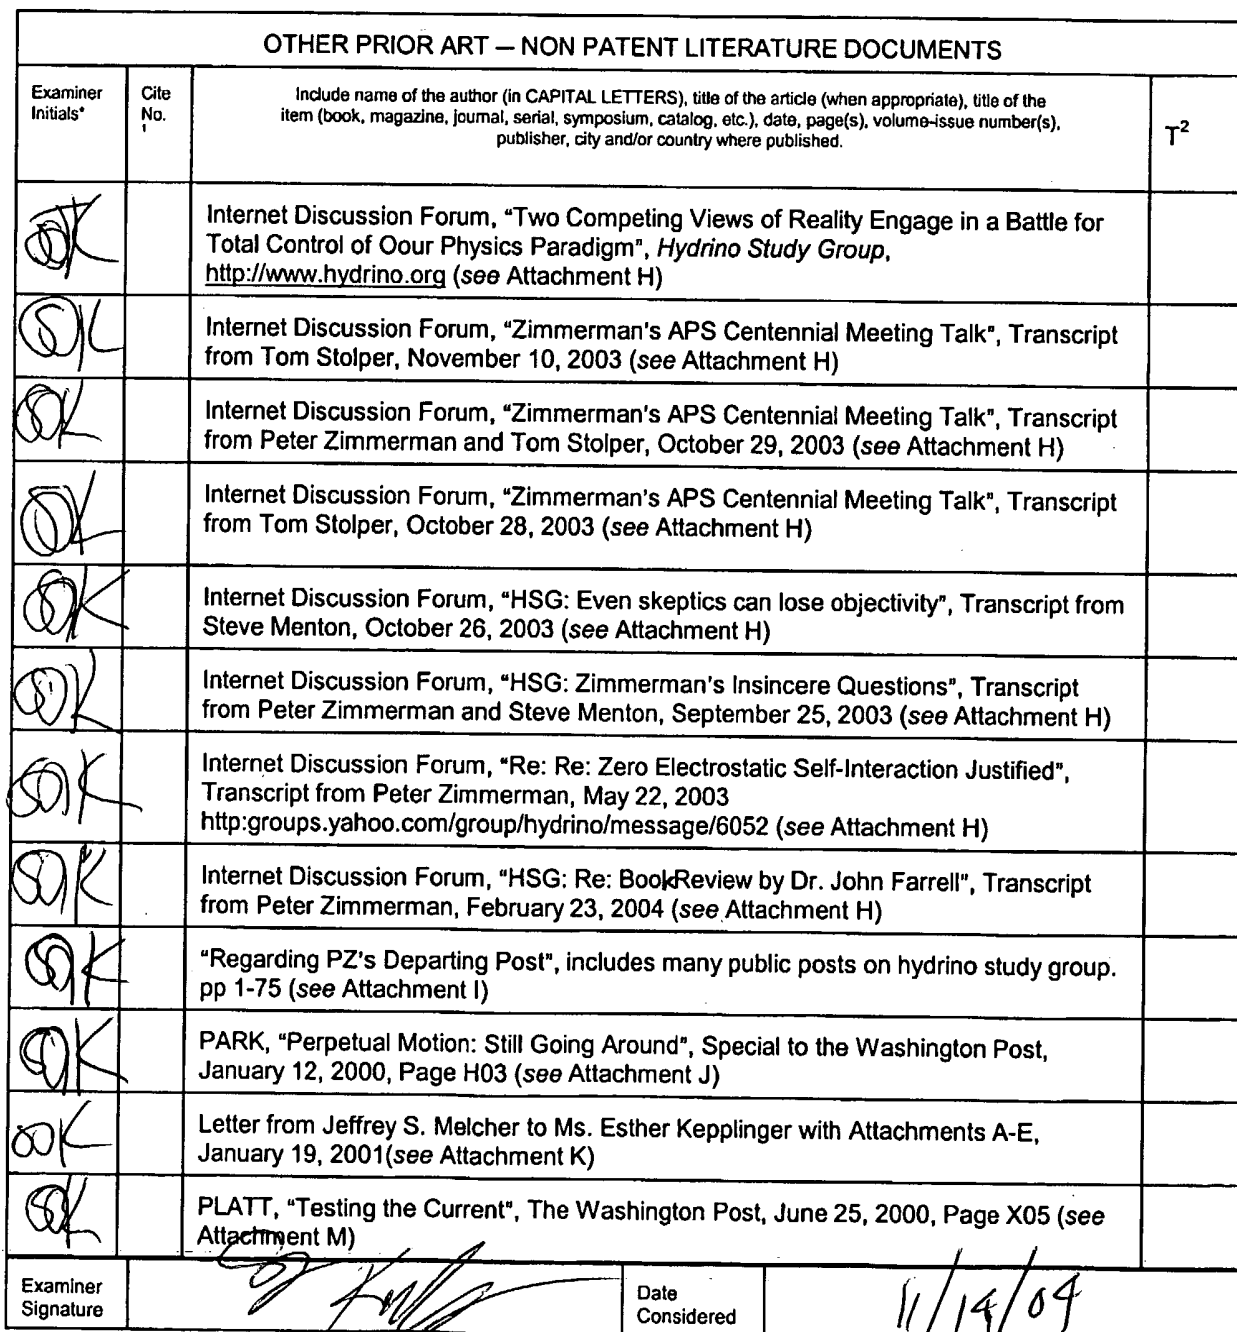 OTHER PRIOR ART — NON PATENT LITERATURE DOCUMENTS
Examiner Initials*
Cite No. 1
Include name of the author (in CAPITAL LETTERS), title of the article (when appropriate), title of the
item (book, magazine, journal, serial, symposium, catalog, etc.), date, page(s), volume-issue number(s),
publisher, city and/or country where published.
T2
Internet Discussion Forum, "Two Competing Views of Reality Engage in a Battle for
Total Control of Oour Physics Paradigm", Hydrino Study Group,
http://www.hydrino.org (see Attachment H)
Internet Discussion Forum, "Zimmerman's APS Centennial Meeting Talk", Transcript
from Tom Stolper, November 10, 2003 (see Attachment H)
Internet Discussion Forum, "Zimmerman's APS Centennial Meeting Talk", Transcript
from Peter Zimmerman and Tom Stolper, October 29, 2003 (see Attachment H)
Internet Discussion Forum, "Zimmerman's APS Centennial Meeting Talk", Transcript
from Tom Stolper, October 28, 2003 (see Attachment H)
Internet Discussion Forum, "HSG: Even skeptics can lose objectivity", Transcript from
Steve Menton, October 26, 2003 (see Attachment H)
Internet Discussion Forum, "HSG: Zimmerman's Insincere Questions", Transcript
from Peter Zimmerman and Steve Menton, September 25, 2003 (see Attachment H)
Internet Discussion Forum, "Re: Re: Zero Electrostatic Self-Interaction Justified",
Transcript from Peter Zimmerman, May 22, 2003
http:groups.yahoo.com/group/hydrino/message/6052 (see Attachment H)
Internet Discussion Forum, "HSG: Re: Book Review by Dr. John Farrell", Transcript
from Peter Zimmerman, February 23, 2004 (see Attachment H)
"Regarding PZ's Departing Post", includes many public posts on hydrino study group.
pp 1-75 (see Attachment I)
PARK, "Perpetual Motion: Still Going Around", Special to the Washington Post,
January 12, 2000, Page H03 (see Attachment J)
Letter from Jeffrey S. Melcher to Ms. Esther Kepplinger with Attachments A-E,
January 19, 2001(see Attachment K)
PLATT, "Testing the Current", The Washington Post, June 25, 2000, Page X05 (see
Attachment M)
Examiner Signature
Date Considered
11/14/04